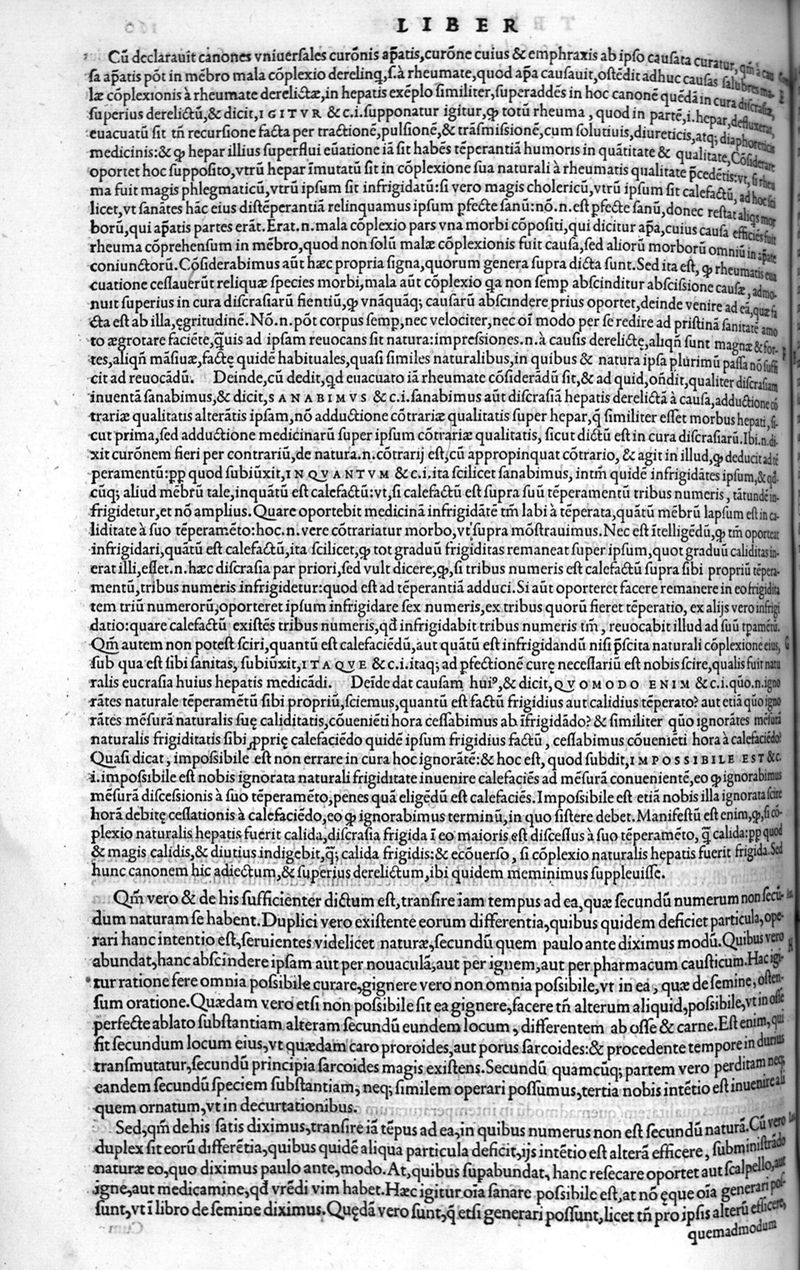 LIBER
Cū declarauit canones vniuersales curōnis aꝑatis, curōne cuius & emphraxis ab ipso causata curatur, qm̄ a cau
sa aꝑatis pōt in mēbro mala cōplexio derelinq, s. à rheumate, quod aꝑa causauit, ostēdit adhuc causas salubres ma
læ cōplexionis à rheumate derelictæ, in hepatis exēplo similiter, superaddēs in hoc canonē quēdā in cura discrasiæ,
superius derelictū, & dicit, IGITVR & c. i. supponatur igitur, ꝙ totū rheuma, quod in partē, i. hepar, defluxerat,
euacuatū sit tn̄ recursione facta per tractionē, pulsionē, & trāsmissionē, cum solutiuis, diureticis, atq; diaphoreticis
medicinis: & ꝙ hepar illius superflui euatione iā sit habēs tēperantiā humoris in quātitate & qualitate, Cōsiderare
oportet hoc supposito, vtrū hepar īmutatū sit in cōplexione sua naturali à rheumatis qualitate p̄cedētis: vt, si rheu
ma fuit magis phlegmaticū, vtrū ipsum sit infrigidatū: si vero magis cholericū, vtrū ipsum sit calefactū, ad hoc sci
licet, vt sanātes hāc eius distēperantiā relinquamus ipsum ꝑfecte sanū: nō. n. est ꝑfecte sanū, donec restat aliqs mor
borū, qui aꝑatis partes erāt. Erat. n. mala cōplexio pars vna morbi cōpositi, qui dicitur aꝑa, cuius causa efficiēs fuit
rheuma cōprehensum in mēbro, quod non solū malæ cōplexionis fuit causa, sed aliorū morborū omniū in aꝑate
coniunctorū. Cōsiderabimus aūt hæc propria signa, quorum genera supra dicta sunt. Sed ita est, ꝙ rheumatis eua
cuatione cessauerūt reliquæ species morbi, mala aūt cōplexio qa non semp abscinditur abscissione causæ, admo-
nuit superius in cura discrasiarū fientiū, ꝙ vnāquāq; causarū abscindere prius oportet, deinde venire ad eā, quæ fa
cta est ab illa, ęgritudinē. Nō. n. pōt corpus semp, nec velociter, nec oī modo per se redire ad pristinā sanitatē amo
to ægrotare faciēte, q̄uis ad ipsam reuocans sit natura: impressiones. n. à causis derelictę, aliqñ sunt magnæ & for-
tes, aliqñ māsiuæ, factę quidē habituales, quasi similes naturalibus, in quibus & natura ipsa plurimū passa nō suffi
cit ad reuocādū. Deinde, cū dedit, qd euacuato iā rheumate cōsiderādū sit, & ad quid, oñdit, qualiter discrasiam
inuentā sanabimus, & dicit, SANABIMVS & c. i. sanabimus aūt discrasiā hepatis derelictā à causa, adductione cō
trariæ qualitatis alterātis ipsam, nō adductione cōtrariæ qualitatis super hepar, q̄ similiter esset morbus hepati, si-
cut prima, sed adductione medicinarū super ipsum cōtrariæ qualitatis, sicut dictū est in cura discrasiarū. Ibi. n. di-
xit curōnem fieri per contrariū, de natura. n. cōtrarij est, cū appropinquat cōtrario, & agit in illud, ꝙ deducit ad tē
peramentū: ꝓp quod subiūxit, INQVANTVM & c. i. ita scilicet sanabimus, intm̄ quidē infrigidātes ipsum, & qd-
cūq; aliud mēbrū tale, inquātū est calefactū: vt, si calefactū est supra suū tēperamentū tribus numeris, tātundē in-
frigidetur, et nō amplius. Quare oportebit medicinā infrigidātē tm̄ labi à tēperata, quātū mēbrū lapsum est in ca-
liditate à suo tēperamēto: hoc. n. vere cōtrariatur morbo, vt supra mōstrauimus. Nec est ītelligēdū, ꝙ tm̄ oporteat
infrigidari, quātū est calefactū, ita scilicet, ꝙ tot graduū frigiditas remaneat super ipsum, quot graduū caliditas in-
erat illi, esset. n. hæc discrasia par priori, sed vult dicere, ꝙ, si tribus numeris est calefactū supra sibi propriū tēpera-
mentū, tribus numeris infrigidetur: quod est ad tēperantiā adduci. Si aūt oporteret facere remanere in eo frigidita
tem triū numerorū, oporteret ipsum infrigidare sex numeris, ex tribus quorū fieret tēperatio, ex alijs vero infrigi
datio: quare calefactū existēs tribus numeris, qd infrigidabit tribus numeris tm̄, reuocabit illud ad suū tpamētū.
Qm̄ autem non potest sciri, quantū est calefaciēdū, aut quātū est infrigidandū nisi p̄scita naturali cōplexione eius,
sub qua est sibi sanitas, subiūxit, ITAQVE & c. i. itaq; ad ꝑfectionē curę necessariū est nobis scire, qualis fuit natu
ralis eucrasia huius hepatis medicādi. Deīde dat causam hui⁹, & dicit, QVOMODO ENIM & c. i. quō. n. igno
rātes naturale tēperamētū sibi propriū, sciemus, quantū est factū frigidius aut calidius tēperato? aut etiā quō igno
rātes mēsurā naturalis suę caliditatis, cōueniēti hora cessabimus ab īfrigidādo? & similiter quō ignorātes mēsurā
naturalis frigiditatis sibi ꝓprię calefaciēdo quidē ipsum frigidius factū, cessabimus cōueniēti hora à calefaciēdo?
Quasi dicat, impossibile est non errare in cura hoc ignorātē: & hoc est, quod subdit, IMPOSSIBILE EST & c.
i. impossibile est nobis ignorata naturali frigiditate inuenire calefaciēs ad mēsurā conuenientē, eo ꝙ ignorabimus
mēsurā discessionis à suo tēperamēto, penes quā eligēdū est calefaciēs. Impossibile est etiā nobis illa ignorata scire
horā debitę cessationis à calefaciēdo, eo ꝙ ignorabimus terminū, in quo sistere debet. Manifestū est enim, ꝙ, si cō-
plexio naturalis hepatis fuerit calida, discrasia frigida ī eo maioris est discessus à suo tēperamēto, q̄ calida: ꝓp quod
& magis calidis, & diutius indigebit, q̄; calida frigidis: & ecōuerso, si cōplexio naturalis hepatis fuerit frigida. Sed
hunc canonem hic adiectum, & superius derelictum, ibi quidem meminimus suppleuisse.
Qm̄ vero & de his sufficienter dictum est, transire iam tempus ad ea, quæ secundū numerum non secū-
dum naturam se habent. Duplici vero existente eorum differentia, quibus quidem deficiet particula, ope-
rari hanc intentio est, seruientes videlicet naturæ, secundū quem paulo ante diximus modū. Quibus vero
abundat, hanc abscindere ipsam aut per nouaculā, aut per ignem, aut per pharmacum causticum. Hac igi-
tur ratione fere omnia possibile curare, gignere vero non omnia possibile, vt in ea, quæ de semine, osten-
sum oratione. Quædam vero etsi non possibile sit ea gignere, facere tn̄ alterum aliquid, possibile, vt in osse
perfecte ablato substantiam alteram secundū eundem locum, differentem ab osse & carne. Est enim, qui
fit secundum locum eius, vt quædam caro proroides, aut porus sarcoides: & procedente tempore in durius
transmutatur, secundū principia sarcoides magis existens. Secundū quamcūq; partem vero perditam neq;
eandem secundū speciem substantiam, neq; similem operari possumus, tertia nobis intētio est inuenire ali
quem ornatum, vt in decurtationibus.
Sed, qm̄ de his satis diximus, transire iā tēpus ad ea, in quibus numerus non est secundū naturā. Cū vero
duplex sit eorū differētia, quibus quidē aliqua particula deficit, ijs intētio est alterā efficere, subministrādo
naturæ eo, quo diximus paulo ante, modo. At, quibus supabundat, hanc resecare oportet aut scalpello, aut
igne, aut medicamine, qd vrēdi vim habet. Hæc igitur oīa sanare possibile est, at nō ęque oīa generari pos-
sunt, vt ī libro de semine diximus. Quędā vero sunt, q̄ etsi generari possunt, licet tn̄ pro ipsis alterū efficere,
quemadmodum